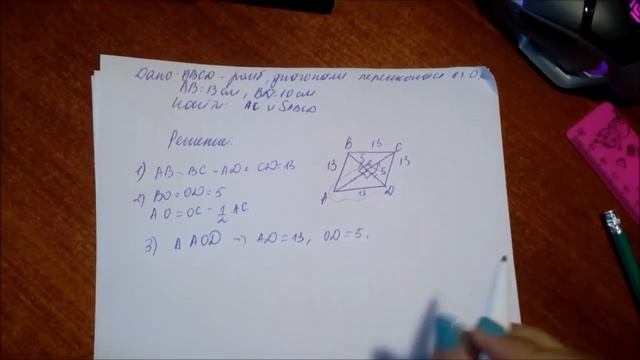 Дано: ABCD - ромб, диагонали пересекаются в т.O.
AB=13 см, BD=10 см
Найти: AC и SABCD
Решение:
1) AB = BC = AD = CD = 13
2) BO = OD = 5
AO = OC = 1/2 AC
3) Δ AOD → AD = 13, OD = 5.
B 13 C
13 5 5 13
A 13 D